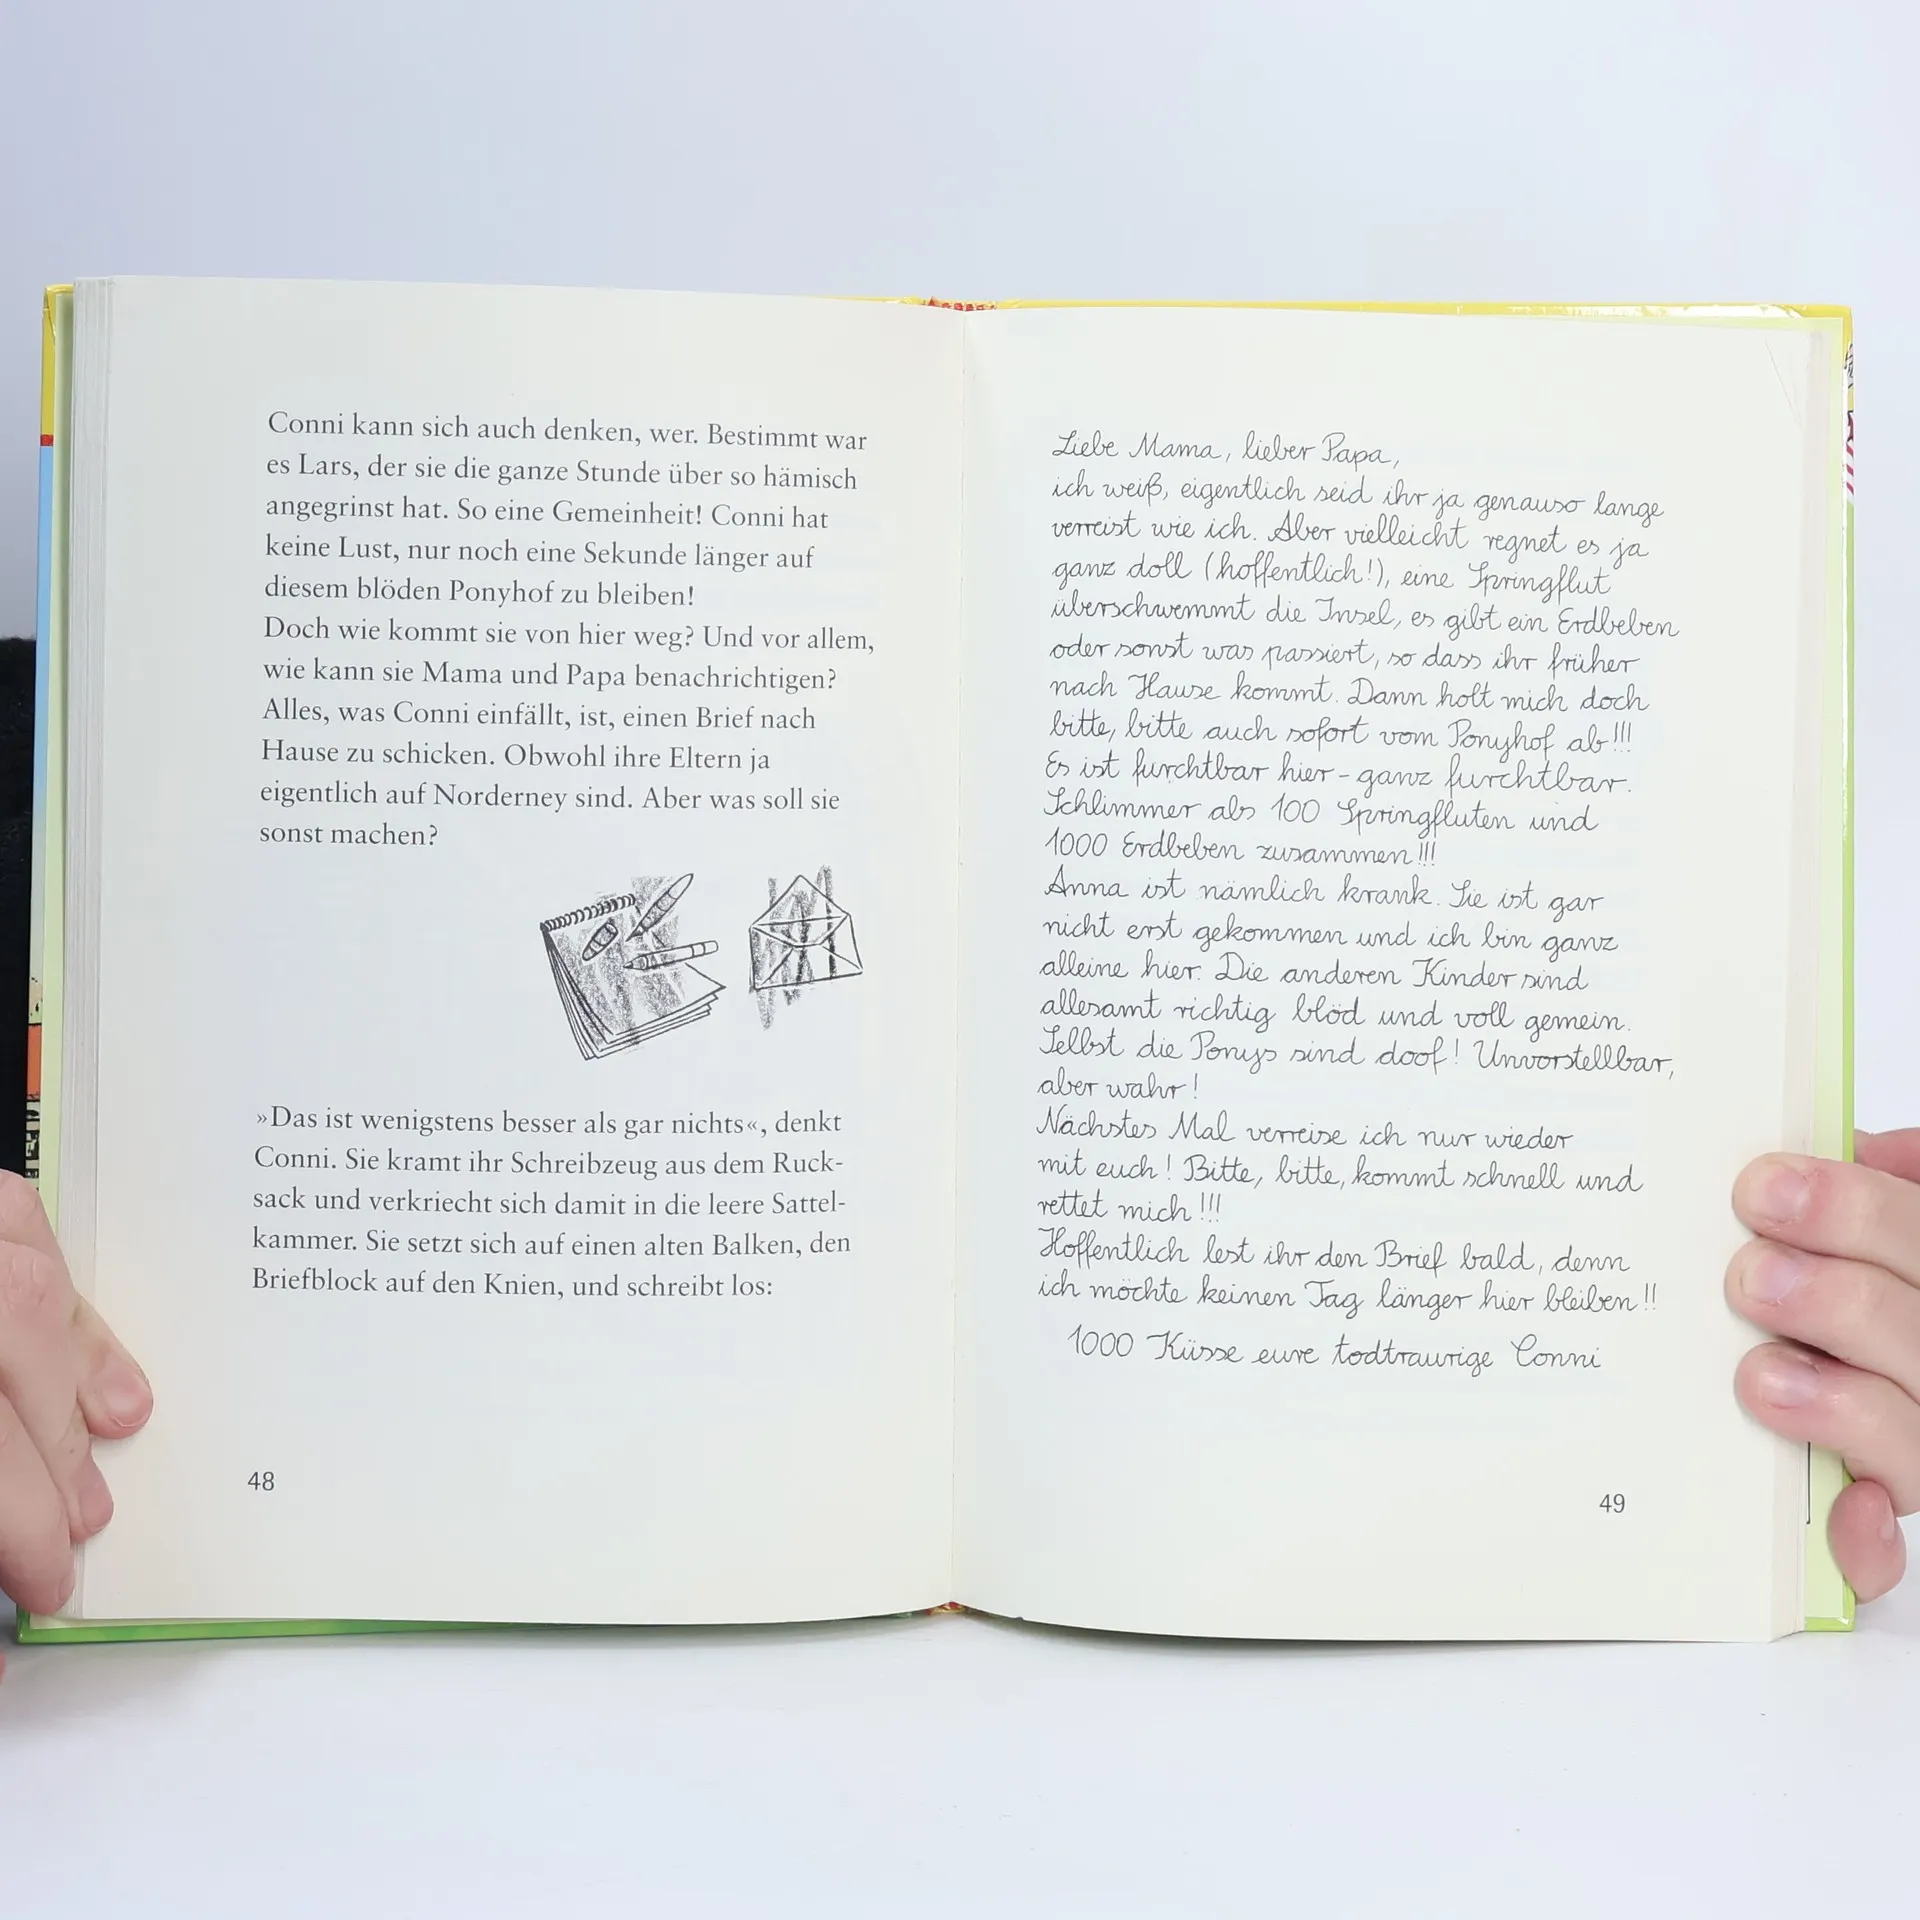 Conni kann sich auch denken, wer. Bestimmt war
es Lars, der sie die ganze Stunde über so hämisch
angegrinst hat. So eine Gemeinheit! Conni hat
keine Lust, nur noch eine Sekunde länger auf
diesem blöden Ponyhof zu bleiben!
Doch wie kommt sie von hier weg? Und vor allem,
wie kann sie Mama und Papa benachrichtigen?
Alles, was Conni einfällt, ist, einen Brief nach
Hause zu schicken. Obwohl ihre Eltern ja
eigentlich auf Norderney sind. Aber was soll sie
sonst machen?
»Das ist wenigstens besser als gar nichts«, denkt
Conni. Sie kramt ihr Schreibzeug aus dem Ruck-
sack und verkriecht sich damit in die leere Sattel-
kammer. Sie setzt sich auf einen alten Balken, den
Briefblock auf den Knien, und schreibt los:
48
Liebe Mama, lieber Papa,
ich weiß, eigentlich seid ihr ja genauso lange
verreist wie ich. Aber vielleicht regnet es ja
ganz doll (hoffentlich!), eine Springflut
überschwemmt die Insel, es gibt ein Erdbeben
oder sonst was passiert, so dass ihr früher
nach Hause kommt. Dann holt mich doch
bitte, bitte auch sofort vom Ponyhof ab!!!
Es ist furchtbar hier - ganz furchtbar.
Schlimmer als 100 Springfluten und
1000 Erdbeben zusammen!!!
Anna ist nämlich krank. Sie ist gar
nicht erst gekommen und ich bin ganz
alleine hier. Die anderen Kinder sind
allesamt richtig blöd und voll gemein.
Selbst die Ponys sind doof! Unvorstellbar,
aber wahr!
Nächstes Mal verreise ich nur wieder
mit euch! Bitte, bitte, kommt schnell und
rettet mich!!!
Hoffentlich lest ihr den Brief bald, denn
ich möchte keinen Tag länger hier bleiben!!
1000 Küsse eure todtraurige Conni
49